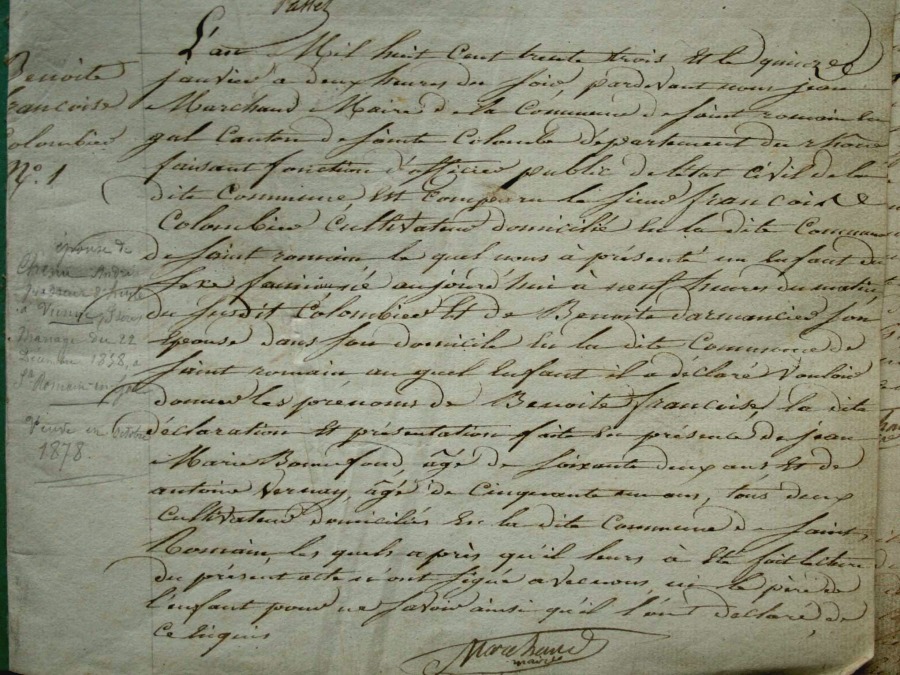 Benoite
françoise
Colombier
N.º 1
épouse de
Chenu André
à Vienne
Mariage du 22
1858, à
St Romain-en-gal
Veuve en Octobre
1878.
L'an Mil huit Cent trente trois Et le quinze
janvier à deux heures du soir pardevant nous jean
Marchand Maire de la Commune de saint romain en
gal Canton de sainte Colombe département du rhône
faisant fonction d'officier public de l'état Civil de la
dite Commune Est Comparu le sieur françois
Colombier Cultivateur domicilié En la dite Commune
de saint romain le quel nous à présenté un Enfant du
sexe aujourd'hui à neuf heures du matin,
du susdit Colombier Et de Benoite darmancier son
Epouse dans son domicile En la dite Commune de
saint romain au quel Enfant il a déclaré vouloir
donner les prénoms de Benoite françoise la dite
déclaration Et présentation faite En présence de jean
Marie Bonnefond, âgé de soixante deux ans Et de
antoine Vernay, âgé de Cinquante un ans, tous deux
Cultivateur domiciliés En la dite Commune de saint
Romain, les quels après qu'il leurs à Eté fait lecture
du présent acte n'ont signé avec nous ni le père de
l'enfant pour ne savoir ainsi qu'il l'ont déclaré de
Ce Enquis
Marchand
maire